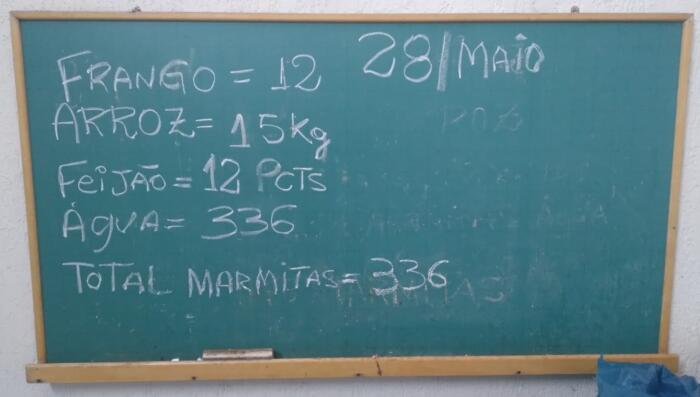 28/MAIO
FRANGO = 12
ARROZ = 15Kg
FeiJÃO = 12 PCTS
ÁgUA = 336
TOTAL MARMiTAS = 336